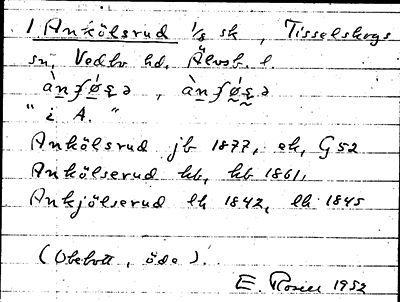 1. Ankölsrud 1/8 sk, Tisselskogs
sn, Vedbo hd, Älvsb. l.
"i A."
Ankölsrud jb 1877, ek, G52
Ankölserud hb, kb 1861,
Ankjölserud lh 1842, lh 1845
(Obebott, öde).
E. Rosen 1952